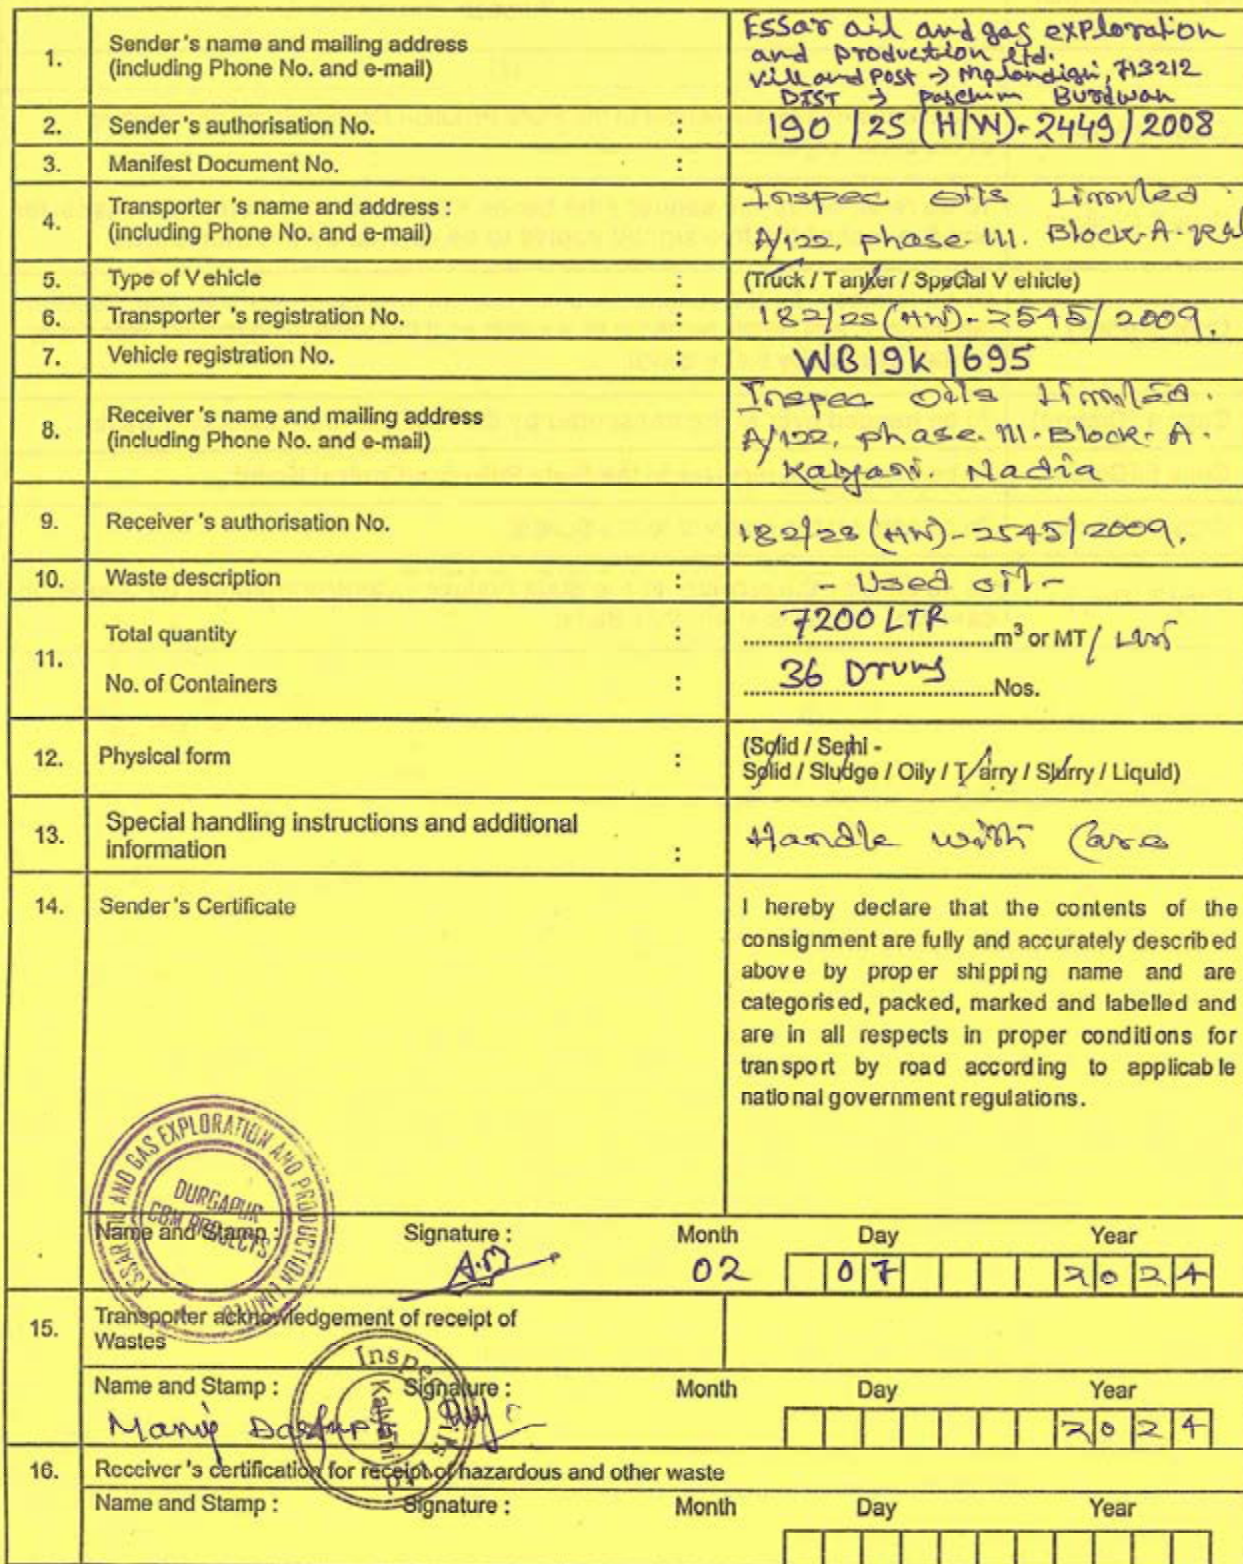 1. Sender's name and mailing address
(including Phone No. and e-mail)
Essar oil and gas exploration
and production Ltd.
Vill and Post → Malandigi, 713212
DIST → Paschim Burdwan
2. Sender's authorisation No. : 190/2S(H/W)-2449/2008
3. Manifest Document No. :
4. Transporter 's name and address :
(including Phone No. and e-mail)
Inspec Oils Limited.
A/122, phase-III. Block-A-
5. Type of V ehicle : (Truck / Tanker / Special V ehicle)
6. Transporter 's registration No. : 182/2S(HW)-2545/2009.
7. Vehicle registration No. : WB19K1695
8. Receiver 's name and mailing address
(including Phone No. and e-mail)
Inspec Oils Limited.
A/122, phase-III-Block-A-
Kalyani. Nadia
9. Receiver 's authorisation No. 182/2S(HW)-2545/2009.
10. Waste description : - Used oil -
11. Total quantity : 7200 LTR m³ or MT /
No. of Containers : 36 Drums Nos.
12. Physical form : (Solid / Semi -
Solid / Sludge / Oily / T arry / Slurry / Liquid)
13. Special handling instructions and additional
information : Handle with Care
14. Sender's Certificate
I hereby declare that the contents of the
consignment are fully and accurately described
above by proper shipping name and are
categorised, packed, marked and labelled and
are in all respects in proper conditions for
transport by road according to applicable
national government regulations.
ESSAR OIL AND GAS EXPLORATION AND PRODUCTION LIMITED
DURGAPUR
CBM PROJECTS
Name and Stamp : Signature : Month Day Year
02 07 2024
15. Transporter acknowledgement of receipt of
Wastes
Inspec Oils Ltd
Kalyani
Name and Stamp : Signature : Month Day Year
2024
16. Receiver 's certification for receipt of hazardous and other waste
Name and Stamp : Signature : Month Day Year